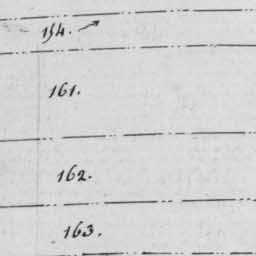 154.
161.
162.
163.